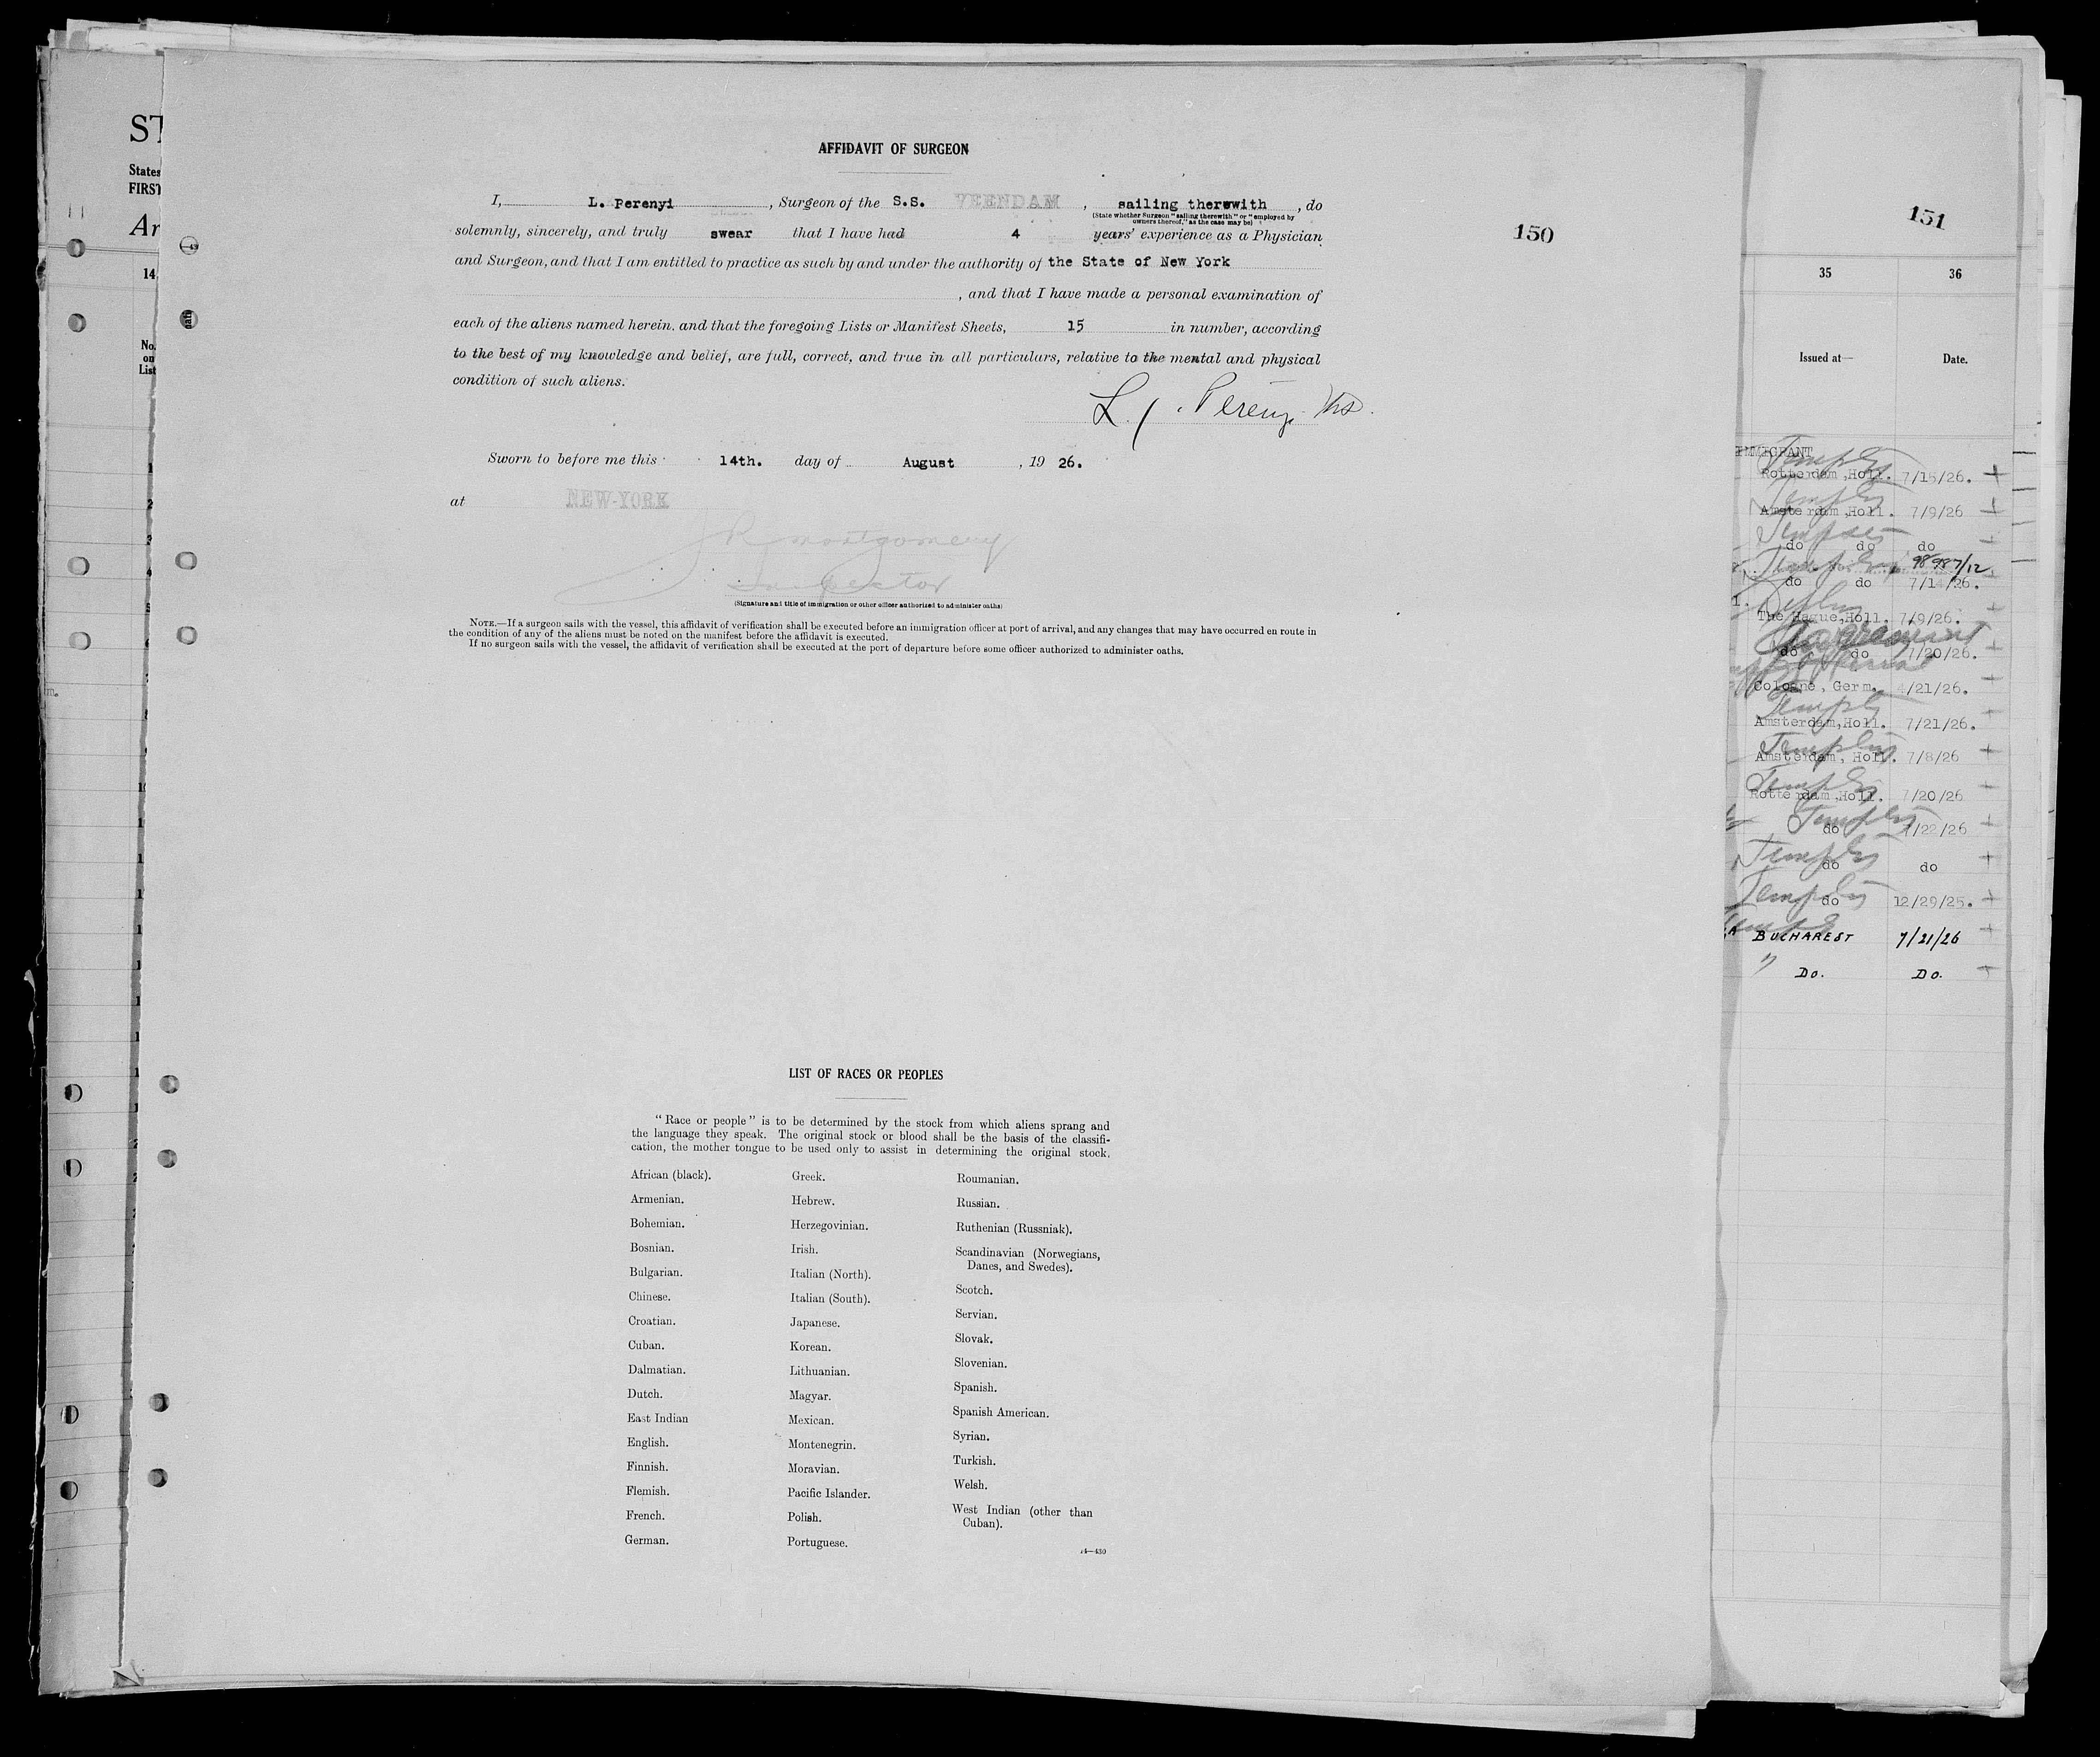 AFFIDAVIT OF SURGEON
I, L. Perenyi, Surgeon of the S.S. VEENDAM, sailing therewith, do
(State whether Surgeon "sailing therewith" or "employed by
owners thereof," as the case may be)
solemnly, sincerely, and truly swear that I have had 4 years' experience as a Physician
and Surgeon, and that I am entitled to practice as such by and under the authority of the State of New York
, and that I have made a personal examination of
each of the aliens named herein. and that the foregoing Lists or Manifest Sheets, 15 in number, according
to the best of my knowledge and belief, are full, correct, and true in all particulars, relative to the mental and physical
condition of such aliens.
Sworn to before me this 14th. day of August, 19 26.
at NEW-YORK
J R Montgomery
Inspector
(Signature and title of immigration or other officer authorized to administer oaths)
NOTE.—If a surgeon sails with the vessel, this affidavit of verification shall be executed before an immigration officer at port of arrival, and any changes that may have occurred en route in
the condition of any of the aliens must be noted on the manifest before the affidavit is executed.
If no surgeon sails with the vessel, the affidavit of verification shall be executed at the port of departure before some officer authorized to administer oaths.
150
LIST OF RACES OR PEOPLES
"Race or people" is to be determined by the stock from which aliens sprang and
the language they speak. The original stock or blood shall be the basis of the classifi-
cation, the mother tongue to be used only to assist in determining the original stock.
African (black).
Armenian.
Bohemian.
Bosnian.
Bulgarian.
Chinese.
Croatian.
Cuban.
Dalmatian.
Dutch.
East Indian
English.
Finnish.
Flemish.
French.
German.
Greek.
Hebrew.
Herzegovinian.
Irish.
Italian (North).
Italian (South).
Japanese.
Korean.
Lithuanian.
Magyar.
Mexican.
Montenegrin.
Moravian.
Pacific Islander.
Polish.
Portuguese.
Roumanian.
Russian.
Ruthenian (Russniak).
Scandinavian (Norwegians,
Danes, and Swedes).
Scotch.
Servian.
Slovak.
Slovenian.
Spanish.
Spanish American.
Syrian.
Turkish.
Welsh.
West Indian (other than
Cuban).
14—430
ST
States
FIRST
Ar
14
No.
on
List
151
35 36
Issued at— Date.
Rotterdam,Holl. 7/15/26.
Amsterdam,Holl. 7/9/26
do do do
do do 7/14/26.
The Hague,Holl. 7/9/26.
do do 7/20/26.
Cologne, Germ. /21/26.
Amsterdam,Holl. 7/21/26.
Amsterdam, Holl. 7/8/26
Rotterdam,Holl. 7/20/26
do 7/22/26
do do
do 12/29/25.
BUCHAREST 7/21/26
Do. Do.